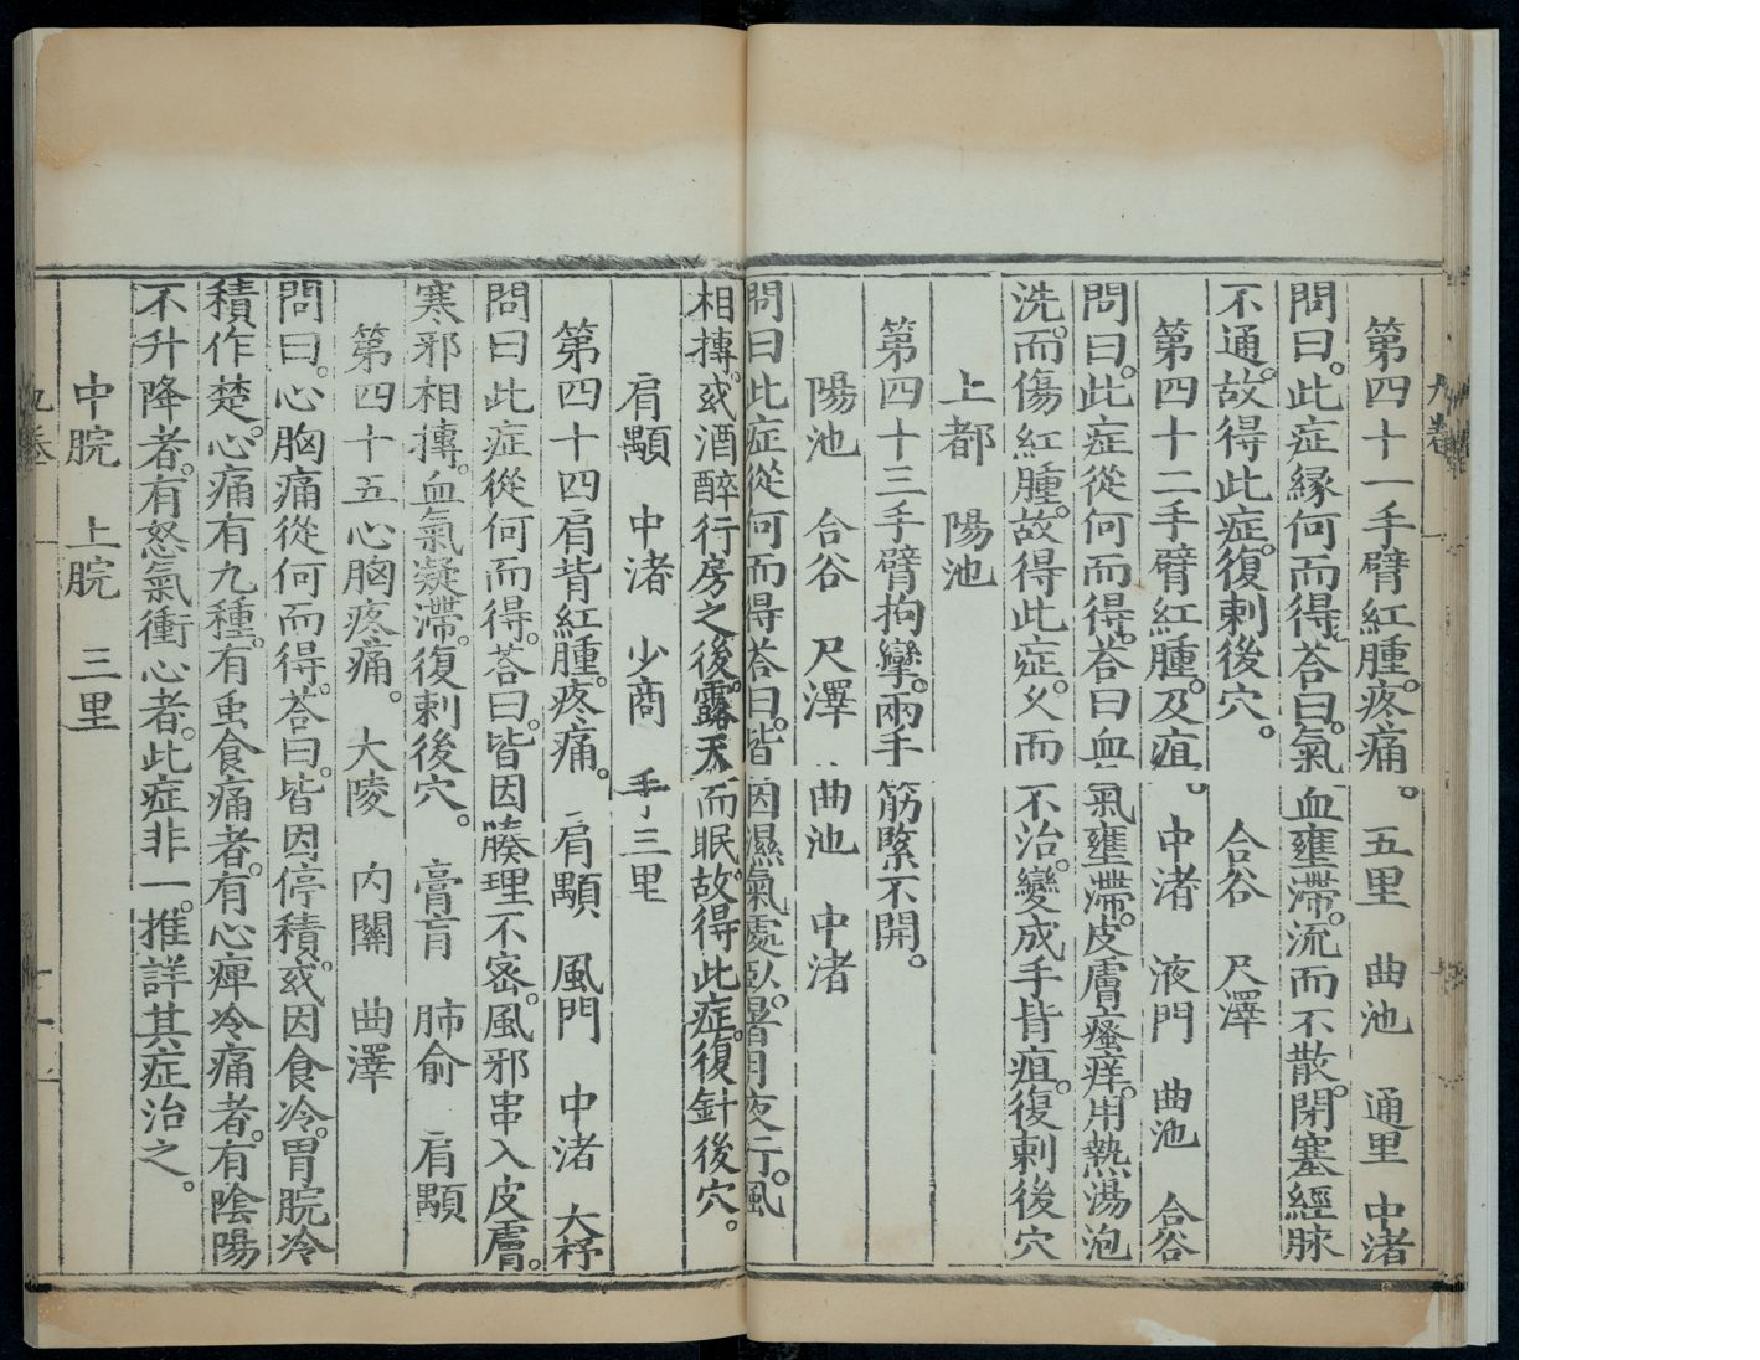 第四十一手臂紅腫。疼痛。　五里　曲池　通里　中渚
問曰。此症縁何而得。荅曰。氣血壅滯。流而不散。閉塞經脉
不通。故得此症。復刺後穴。　合谷　尺澤
第四十二手臂紅腫。及疽。　中渚　液門　曲池　合谷
問曰。此症從何而得。荅曰血氣壅滯。皮膚瘙痒。用熱湯泡
洗。而傷紅腫。故得此症。乆而不治。變成手背疽。復刺後穴
上都　陽池
第四十三手臂拘攣。兩手筋緊不開。
陽池　合谷　尺澤　曲池　中渚
問曰此症從何而得荅曰。皆因濕氣處臥。暑月夜行。風
相搏。或酒醉行房之後。露天而眠。故得此症。復針後穴。
肩顒　中渚　少商　手三里
第四十四肩背紅腫。疼痛。　肩顒　風門　中渚　大杼
問曰此症從何而得。荅曰。皆因腠理不密。風邪串入皮膚。
寒邪相搏。血氣凝滯。復刺後穴。　膏肓　肺俞　肩顒
第四十五心胸疼痛。　大陵　内關　曲澤
問曰。心胸痛從何而得。荅曰。皆因停積。或因食冷。胃脘冷
積作楚。心痛有九種。有虫食痛者。有心痹冷痛者。有陰陽
不升降者。有怒氣衝心者。此症非一。推詳其症治之。
中脘　上脘　三里
九卷